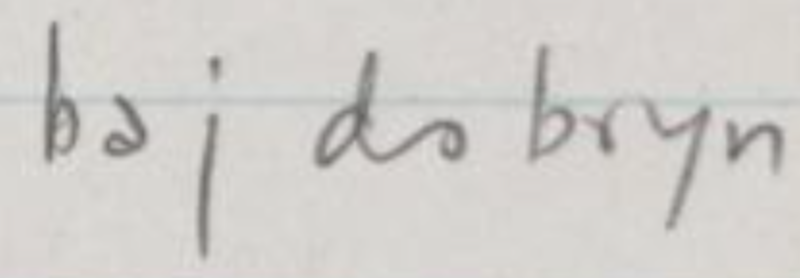 baj do bryn